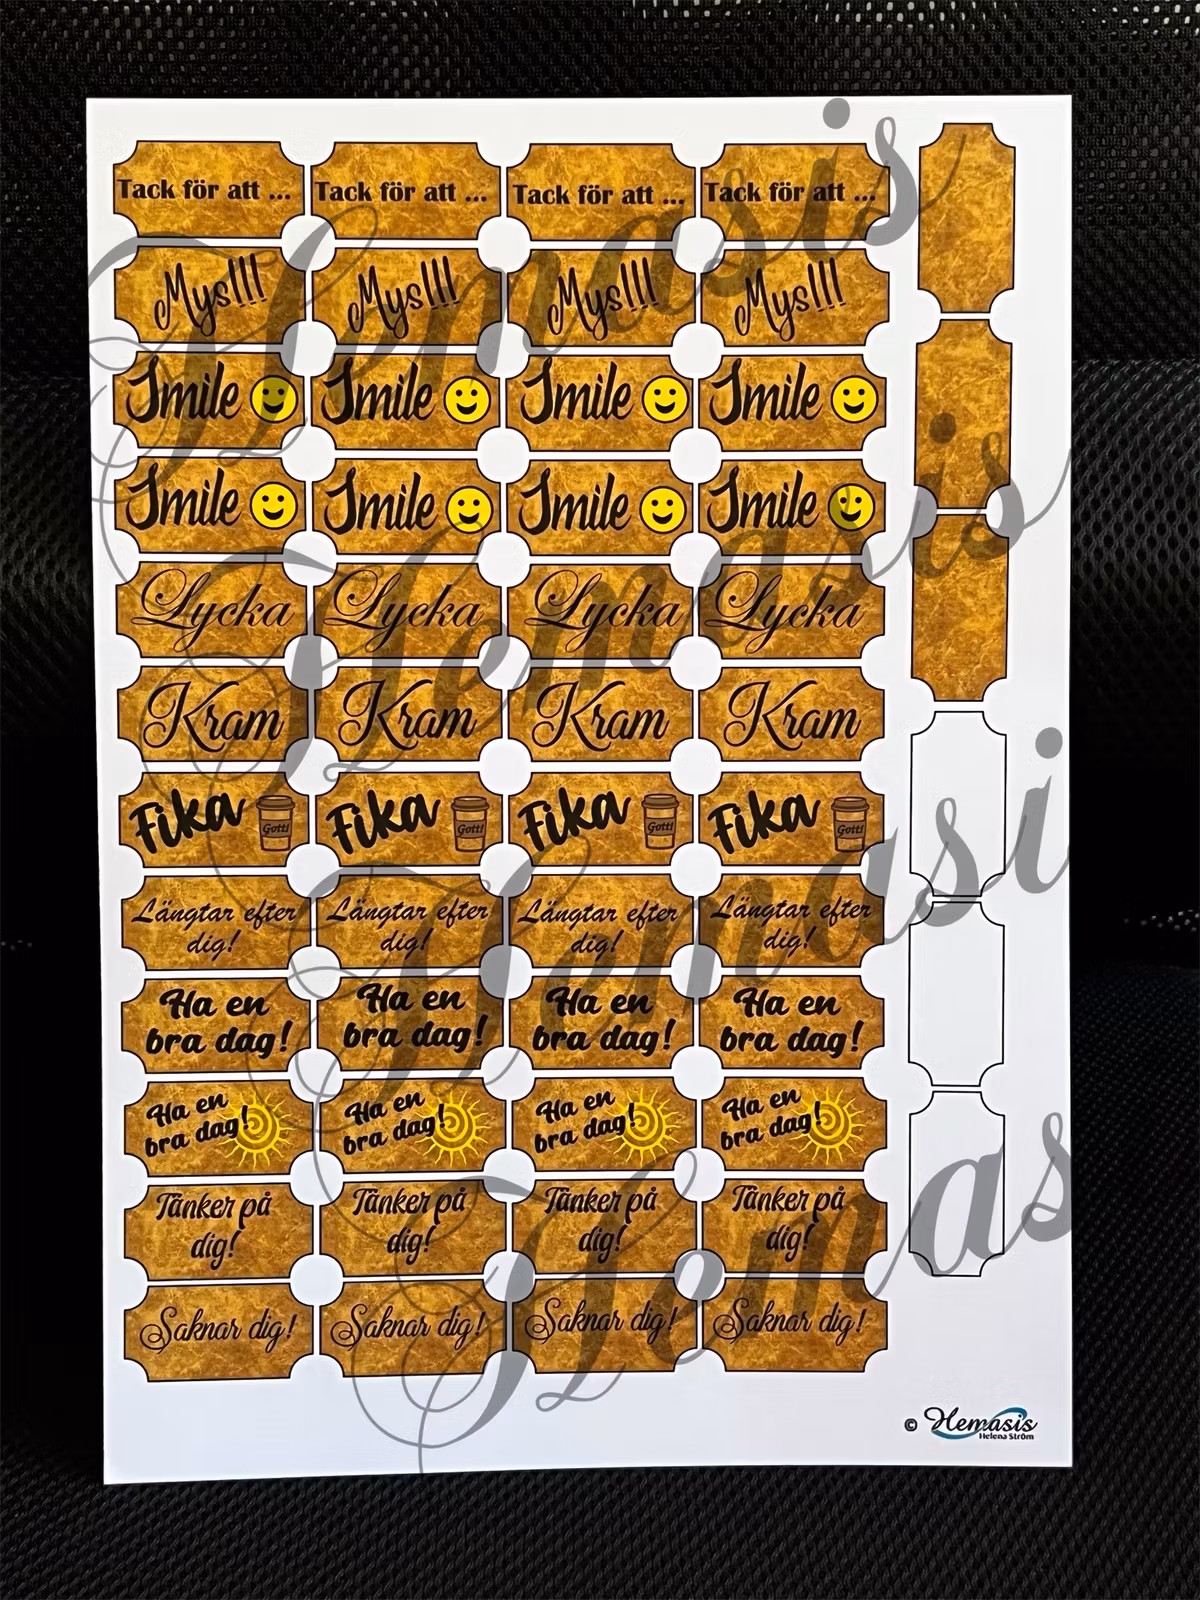 Tack för att ... Tack för att ... Tack för att ... Tack för att ...
Mys!!! Mys!!! Mys!!! Mys!!!
Smile Smile Smile Smile
Smile Smile Smile Smile
Lycka Lycka Lycka Lycka
Kram Kram Kram Kram
Fika Gott! Fika Gott! Fika Gott! Fika Gott!
Längtar efter Längtar efter Längtar efter Längtar efter
dig! dig! dig! dig!
Ha en Ha en Ha en Ha en
bra dag! bra dag! bra dag! bra dag!
Ha en Ha en Ha en Ha en
bra dag! bra dag! bra dag! bra dag!
Tänker på Tänker på Tänker på Tänker på
dig! dig! dig! dig!
Saknar dig! Saknar dig! Saknar dig! Saknar dig!
© Hemasis
Helena Ström
Hemasis
Hemasis
Hemasi
Hemas